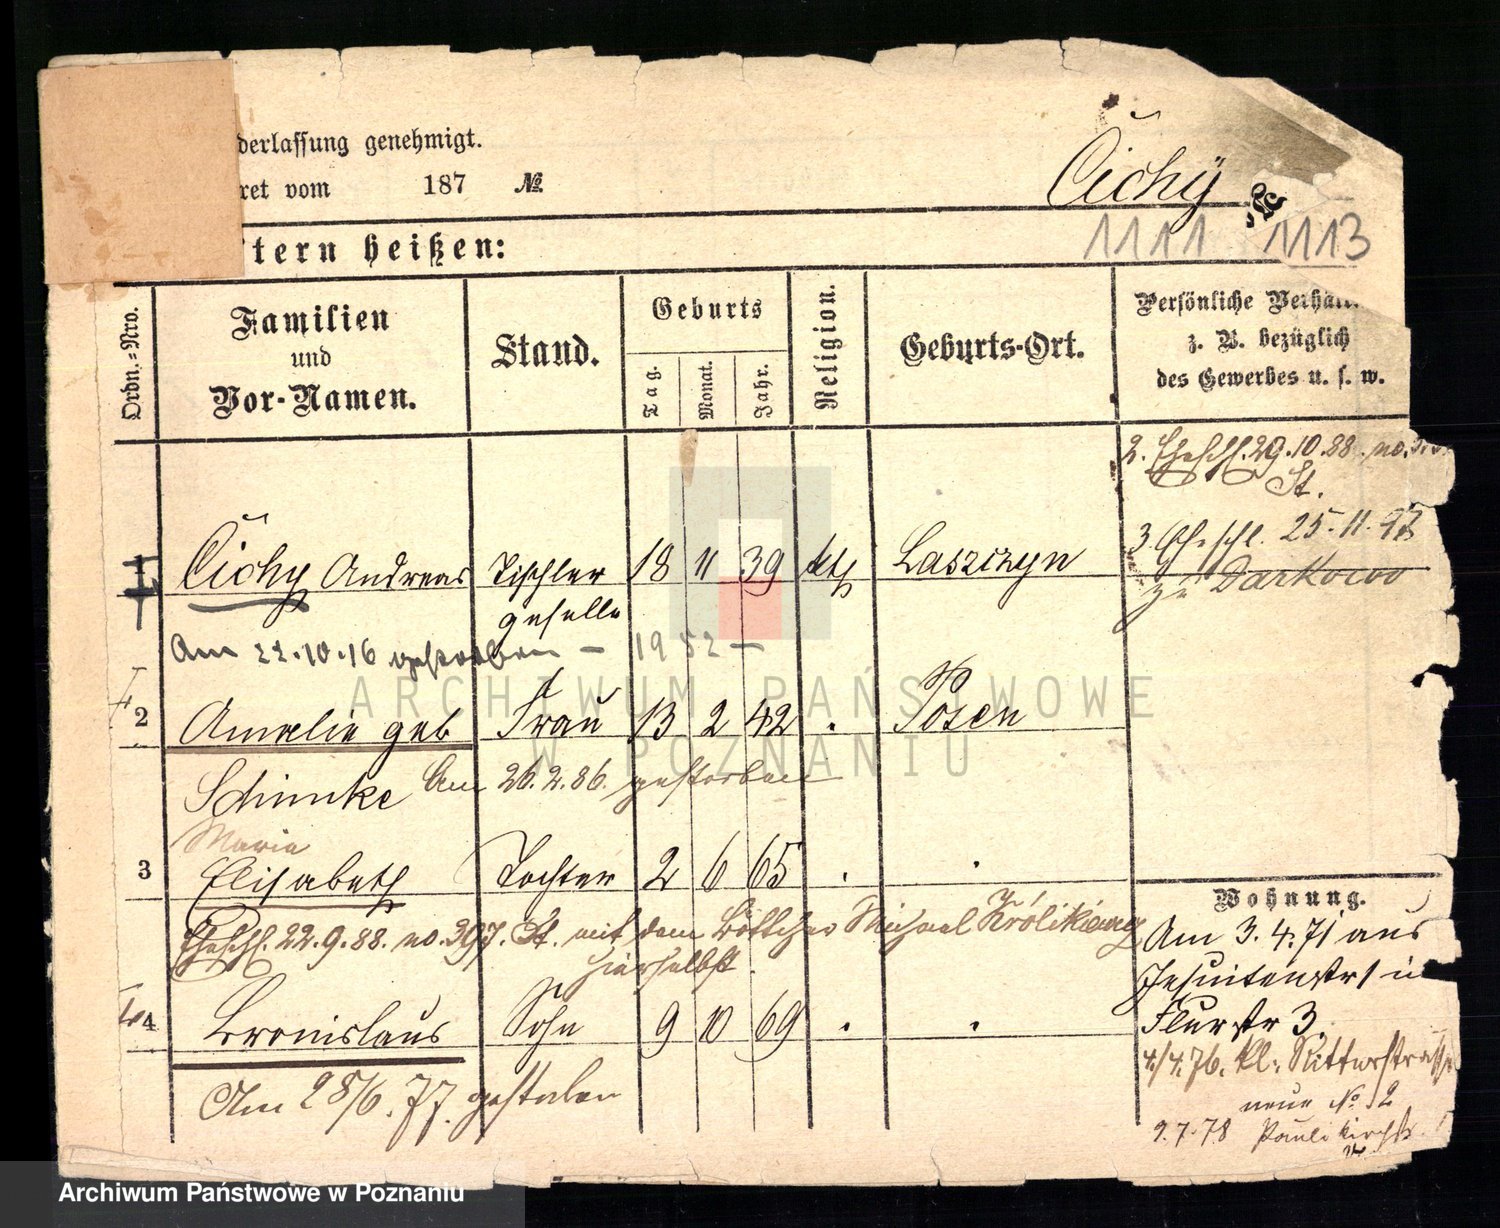 derlassung genehmigt.
ret vom 187 №
Cichy
1111 1113
ltern heißen:
Ordn.-Nro.
Familien
und
Vor-Namen.
Stand.
Geburts
Tag.
Monat.
Jahr.
Religion.
Geburts-Ort.
Persönliche Verhält
z. B. bezüglich
des Gewerbes u. s. w.
2. Eheschl. 29.10.88. no.
St.
3. Eheschl. 25.11.97
zu Darkowo
1 Cichy Andreas Tischler 18 11 39 kth Laszczyn
geselle
Am 22.10.16 gestorben – 1952 –
2 Amalie geb Frau 13 2 42 . Posen
Schimke Am 26.2.86. gestorben
Maria
3 Elisabeth Tochter 2 6 65 . .
Eheschl. 22.9.88. no. 397. St. mit dem Böttcher Michael Królikiewicz
hierselbst.
4 Bronislaus Sohn 9 10 69 . .
Am 28/6.77. gestorben
Wohnung.
Am 3.4.71 aus
Jesuitenstr 1 n
Flurstr 3.
4./4.76. kl. Ritterstrasse
neue No 12
9.7.78 Paulikirchstr.
ARCHIWUM PAŃSTWOWE
W POZNANIU
Archiwum Państwowe w Poznaniu